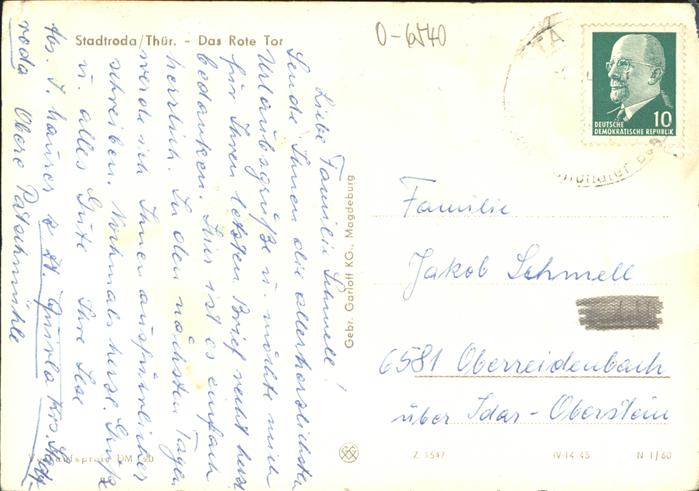 Stadtroda/Thür. - Das Rote Tor
O-6540
Liebe Familie Schmell!
Sende Ihnen die allerherzlichsten
Urlaubsgrüße u. möchte mich
für Ihren letzten Brief recht herzl.
bedanken. Hier ist es einfach
herrlich. In den nächsten Tagen
werde ich Ihnen ausführlicher
schreiben. Nochmals herzl. Grüße
u. alles Gute Ihre Ilse
Abs. I. Maurer z. Zt. Quirla Krs. Stadt-
roda Obere
DEUTSCHE
DEMOKRATISCHE REPUBLIK
10
Gebr. Garloff KG., Magdeburg
Familie
Jakob Schmell
6581 Oberreidenbach
über Idar-Oberstein
Z 1547
IV-14-45
N 1/60